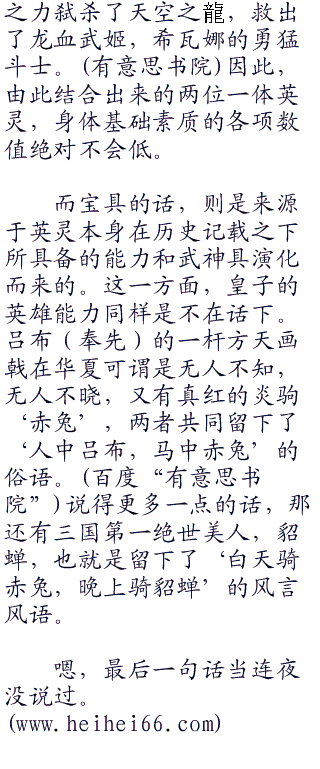 之力弑杀了天空之龍，救出
了龙血武姬，希瓦娜的勇猛
斗士。(有意思书院)因此，
由此结合出来的两位一体英
灵，身体基础素质的各项数
值绝对不会低。
而宝具的话，则是来源
于英灵本身在历史记载之下
所具备的能力和武神具演化
而来的。这一方面，皇子的
英雄能力同样是不在话下。
吕布（奉先）的一杆方天画
戟在华夏可谓是无人不知，
无人不晓，又有真红的炎驹
‘赤兔’，两者共同留下了
‘人中吕布，马中赤兔’的
俗语。(百度“有意思书
院”)说得更多一点的话，那
还有三国第一绝世美人，貂
蝉，也就是留下了‘白天骑
赤兔，晚上骑貂蝉’的风言
风语。
嗯，最后一句话当连夜
没说过。
(www.heihei66.com)